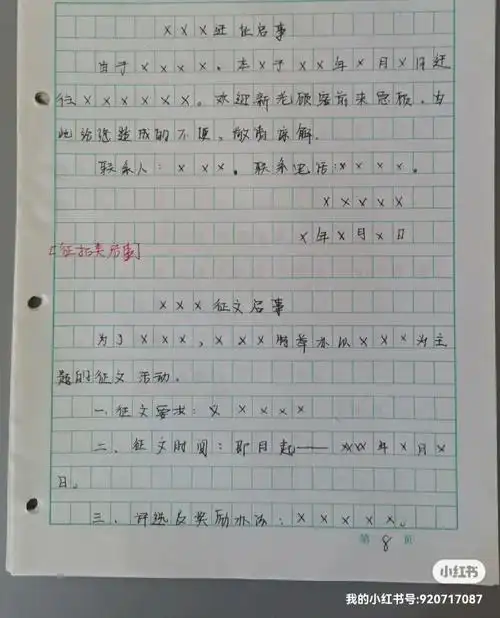 ×××迁址启事
由于××××，本×于××年×月×日迁
往××××××。欢迎新老顾客前来惠顾，由
此给您造成的不便，敬请谅解.
联系人：×××。联系电话：××××。
×××××
×年×月×日
[征招类启事]
×××征文启事
为了×××，×××将举办以×××为主
题的征文活动.
一.征文要求：×××××
二、征文时间：即日起——×××年×月×
日。
三、评选及奖励办法：×××××。
第 8 页
小红书
我的小红书号:920717087